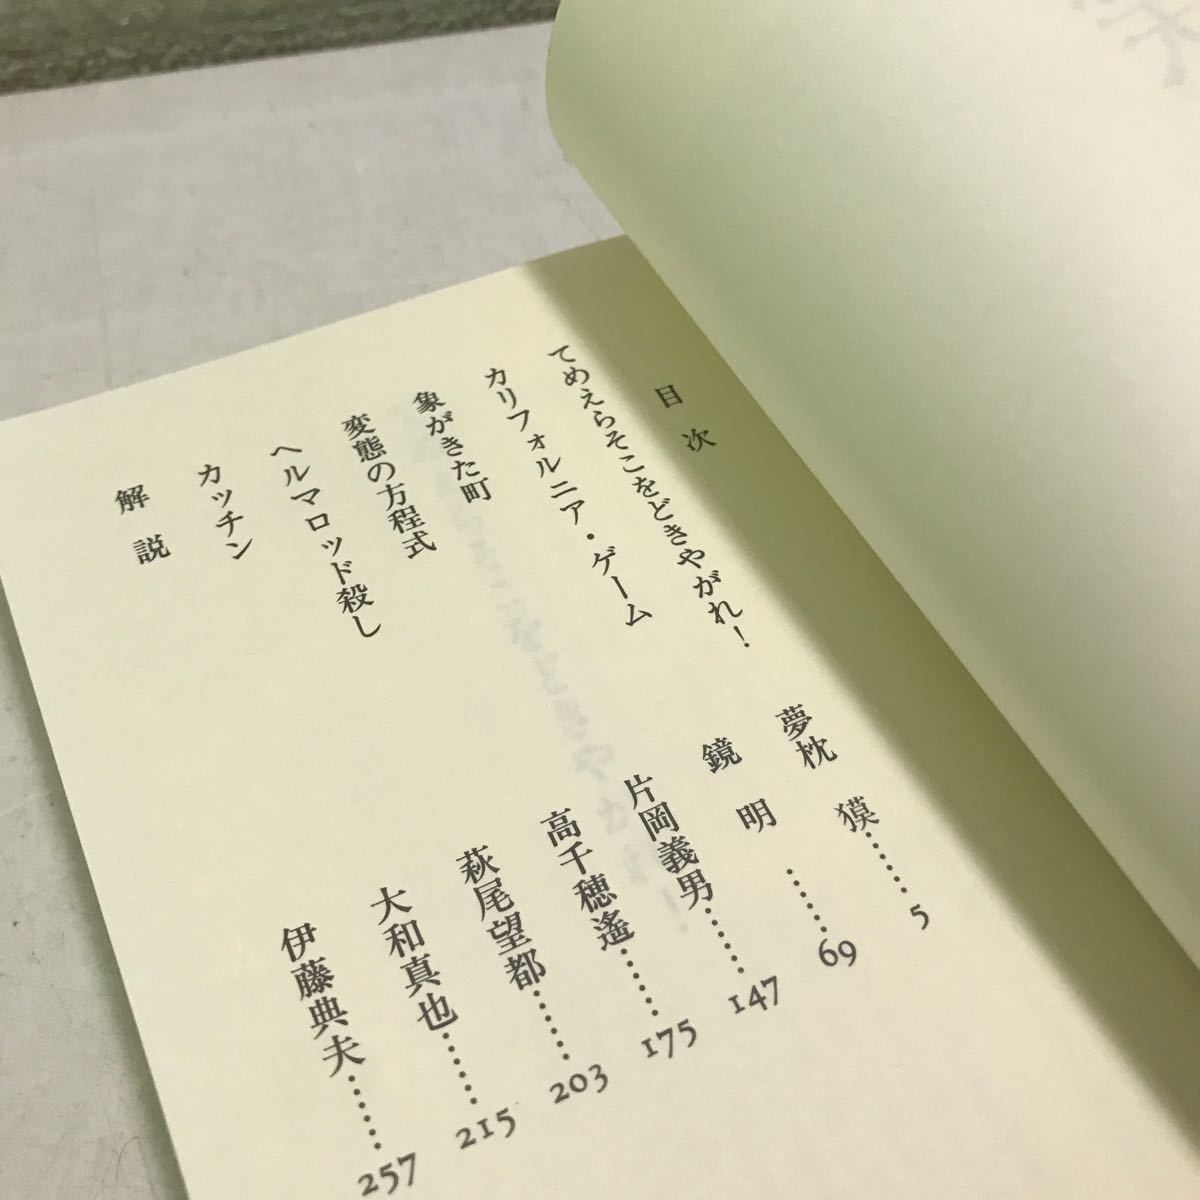 目次
てめえらそこをどきやがれ! 夢枕 獏……5
カリフォルニア・ゲーム 鏡 明……69
象がきた町 片岡義男……147
変態の方程式 高千穂遙……175
ヘルマロッド殺し 萩尾望都……203
カッチン 大和真也……215
解説 伊藤典夫……257